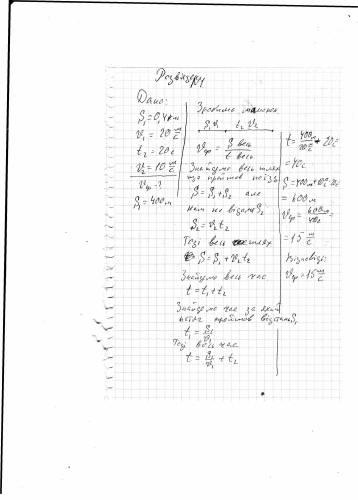 Розв'язання
Дано:
S₁ = 0,4км
v₁ = 20 м/с
t₂ = 20с
v₂ = 10 м/с
vср - ?
S₁ = 400м
Зробимо малюнок
S₁ v₁ t₂ v₂
vср = S весь / t весь
Знайдемо весь шлях
що пройшов поїзд
S = S₁ + S₂ але
нам не відомо S₂
S₂ = v₂t₂
Тоді весь шлях
S = S₁ + v₂t₂
Знайдемо весь час
t = t₁ + t₂
Знайдемо час за який
потяг пройшов відстань S₁
t₁ = S₁/v₁
Тоді весь час
t = S₁/v₁ + t₂
t = 400м / 20 м/с + 20с
= 40с
S = 400м + 10 м/с · 20с
= 600м
vср = 600м / 40с =
= 15 м/с
Відповідь:
vср = 15 м/с